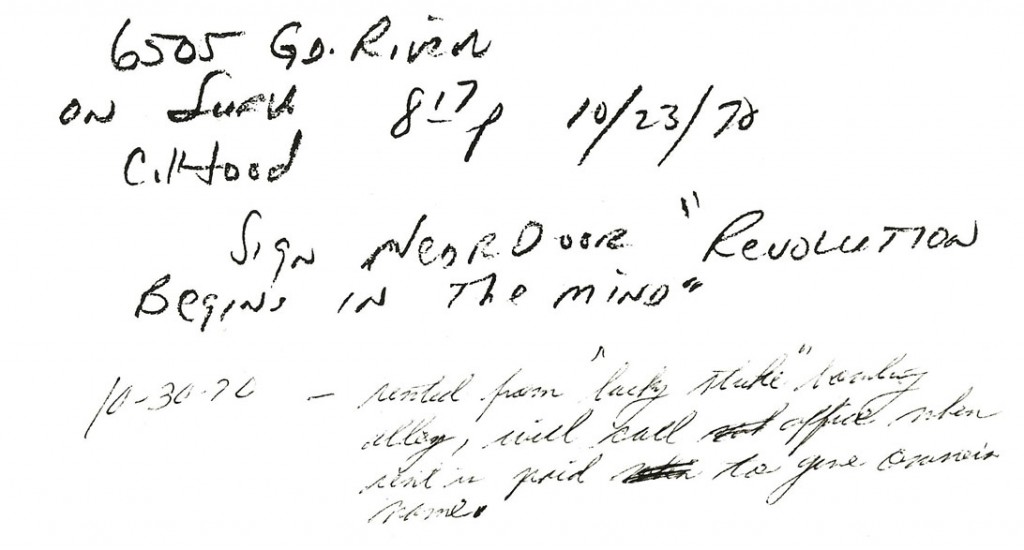 6505 GD. RIVER
ON SURV 8 17 P 10/23/70
C. Hood
Sign NEAR DOOR "REVOLUTION
BegiNs iN The MIND"
10-30-70 - rented from "lucky strike" bowling
alley, will call office when
rent is paid to give owners
name.